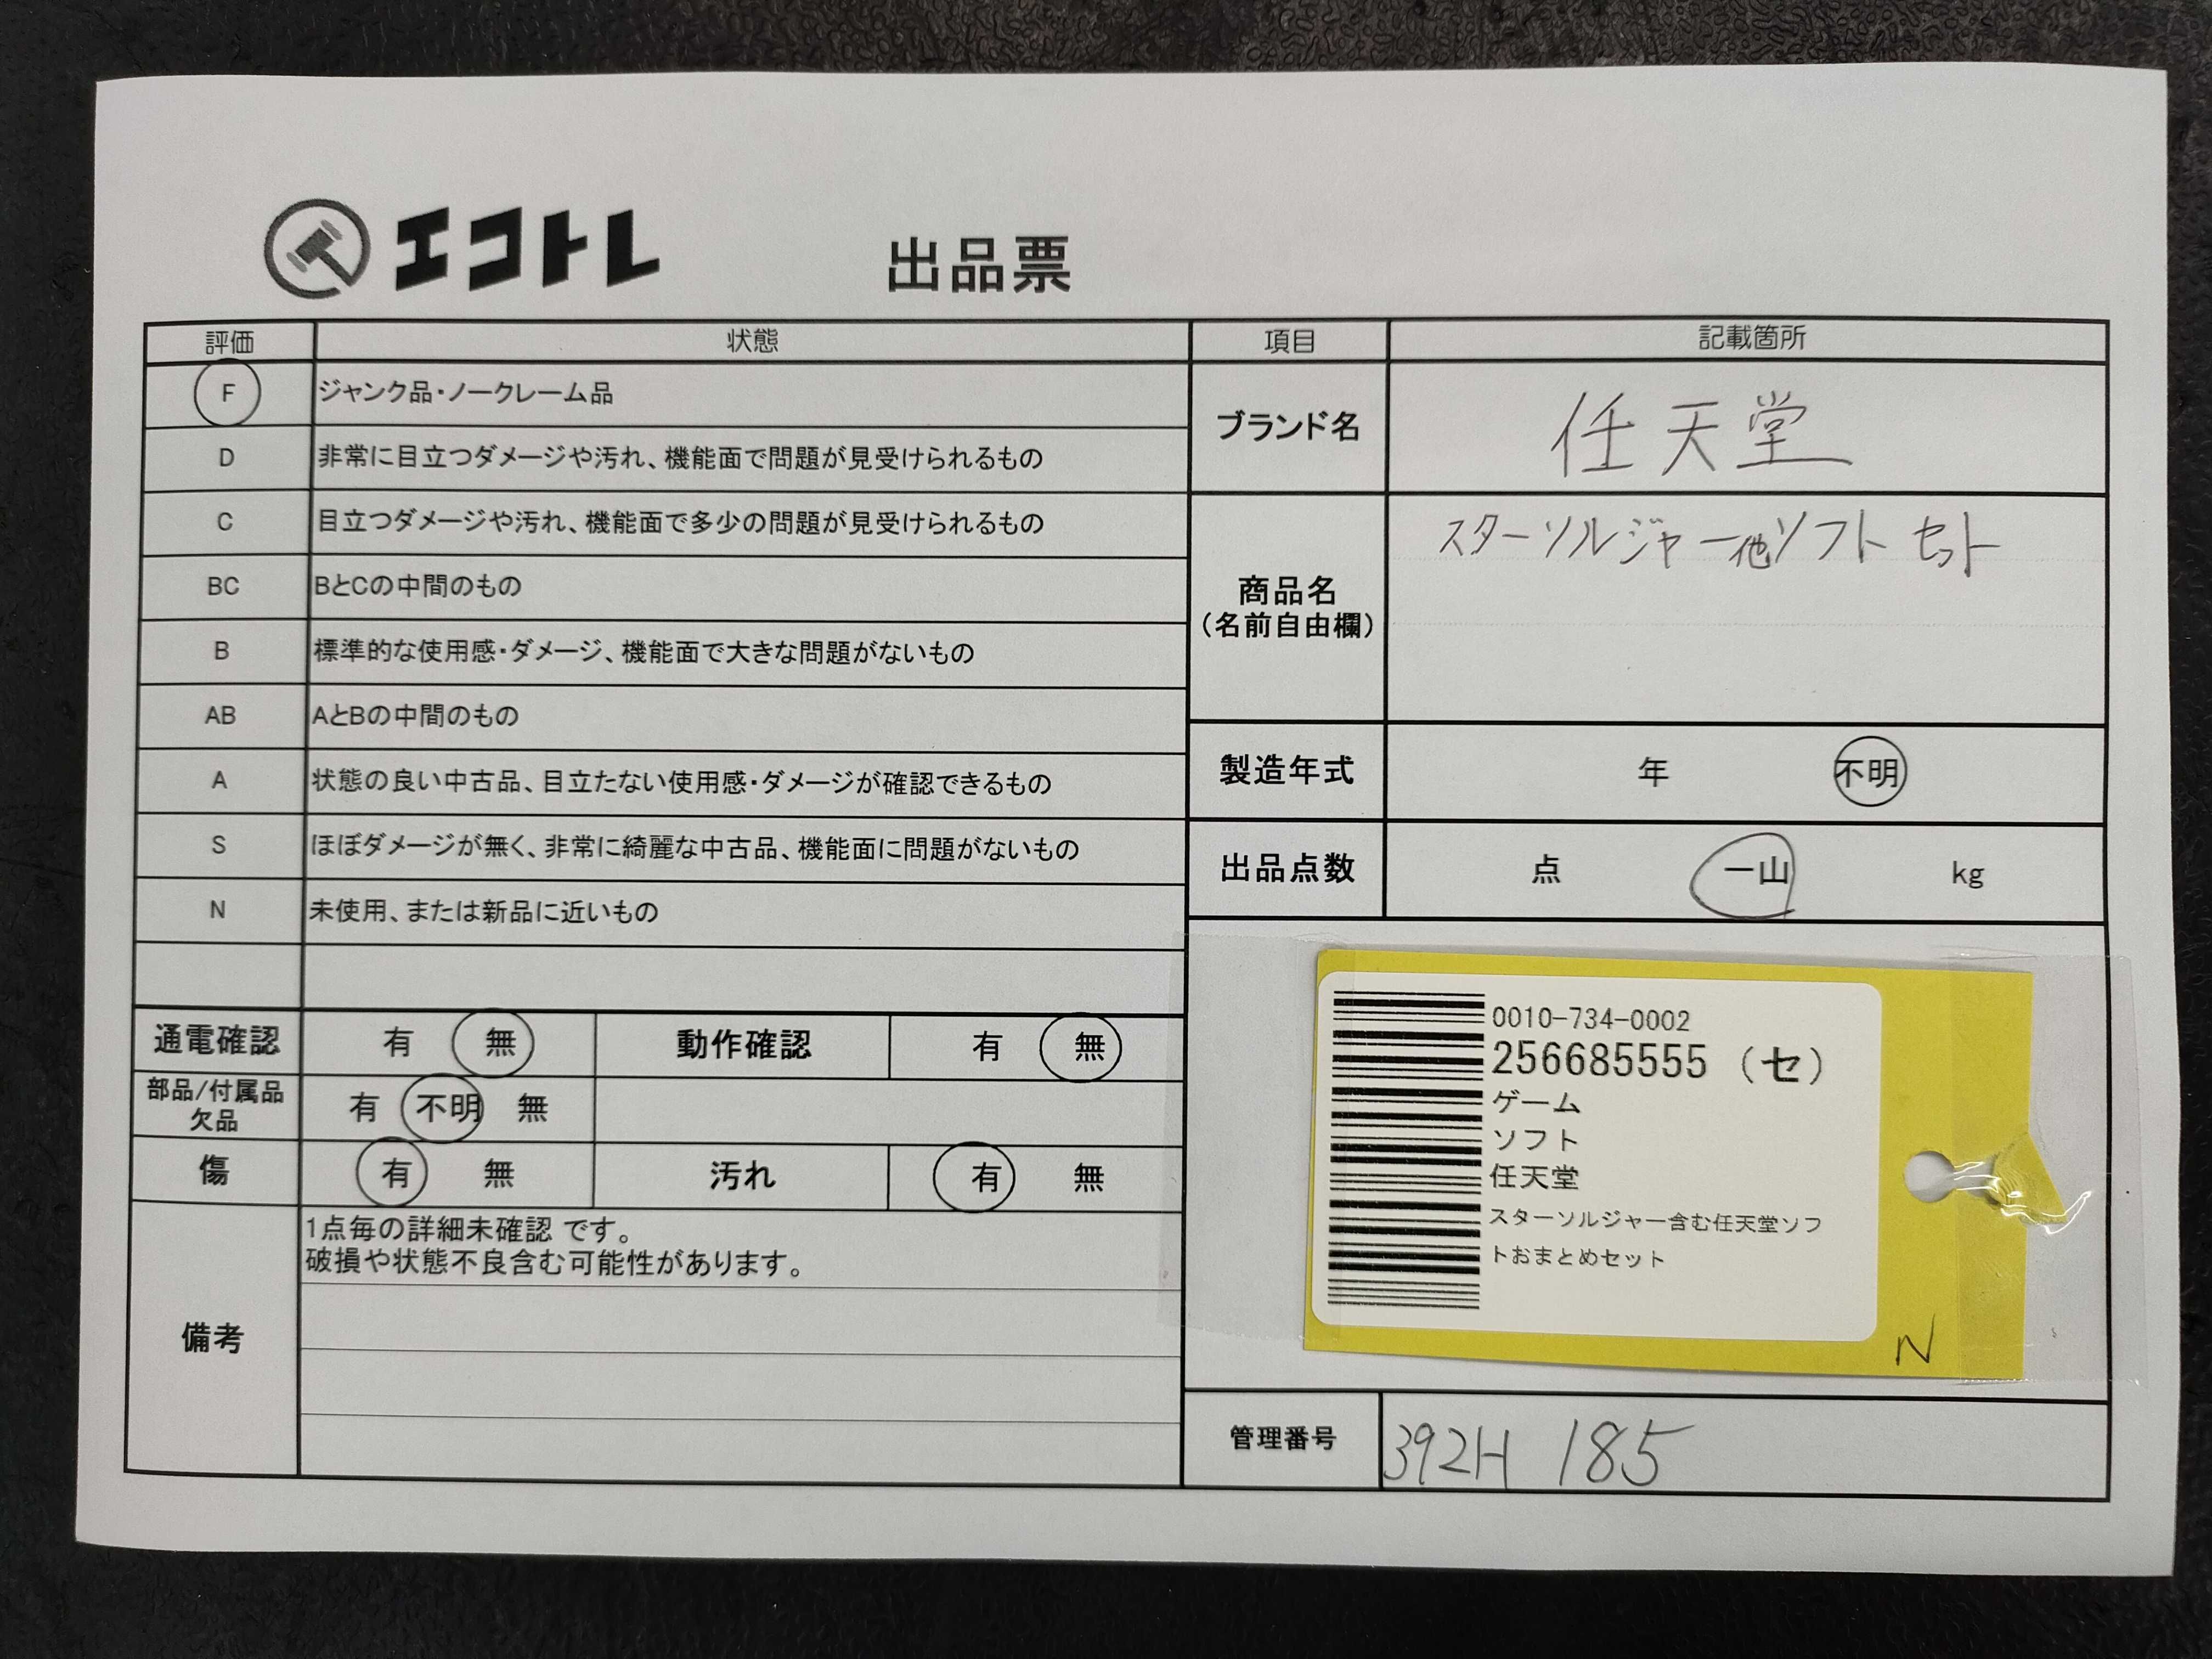 エコトレ
出品票
評価 状態
F ジャンク品・ノークレーム品
D 非常に目立つダメージや汚れ、機能面で問題が見受けられるもの
C 目立つダメージや汚れ、機能面で多少の問題が見受けられるもの
BC BとCの中間のもの
B 標準的な使用感・ダメージ、機能面で大きな問題がないもの
AB AとBの中間のもの
A 状態の良い中古品、目立たない使用感・ダメージが確認できるもの
S ほぼダメージが無く、非常に綺麗な中古品、機能面に問題がないもの
N 未使用、または新品に近いもの
通電確認 有 無 動作確認 有 無
部品/付属品
欠品
有 不明 無
傷 有 無 汚れ 有 無
備考
1点毎の詳細未確認 です。
破損や状態不良含む可能性があります。
項目 記載箇所
ブランド名 任天堂
商品名
(名前自由欄)
スターソルジャー他ソフトセット
製造年式 年 不明
出品点数 点 一山 kg
0010-734-0002
256685555 (セ)
ゲーム
ソフト
任天堂
スターソルジャー含む任天堂ソフ
トおまとめセット
N
管理番号 392H 185